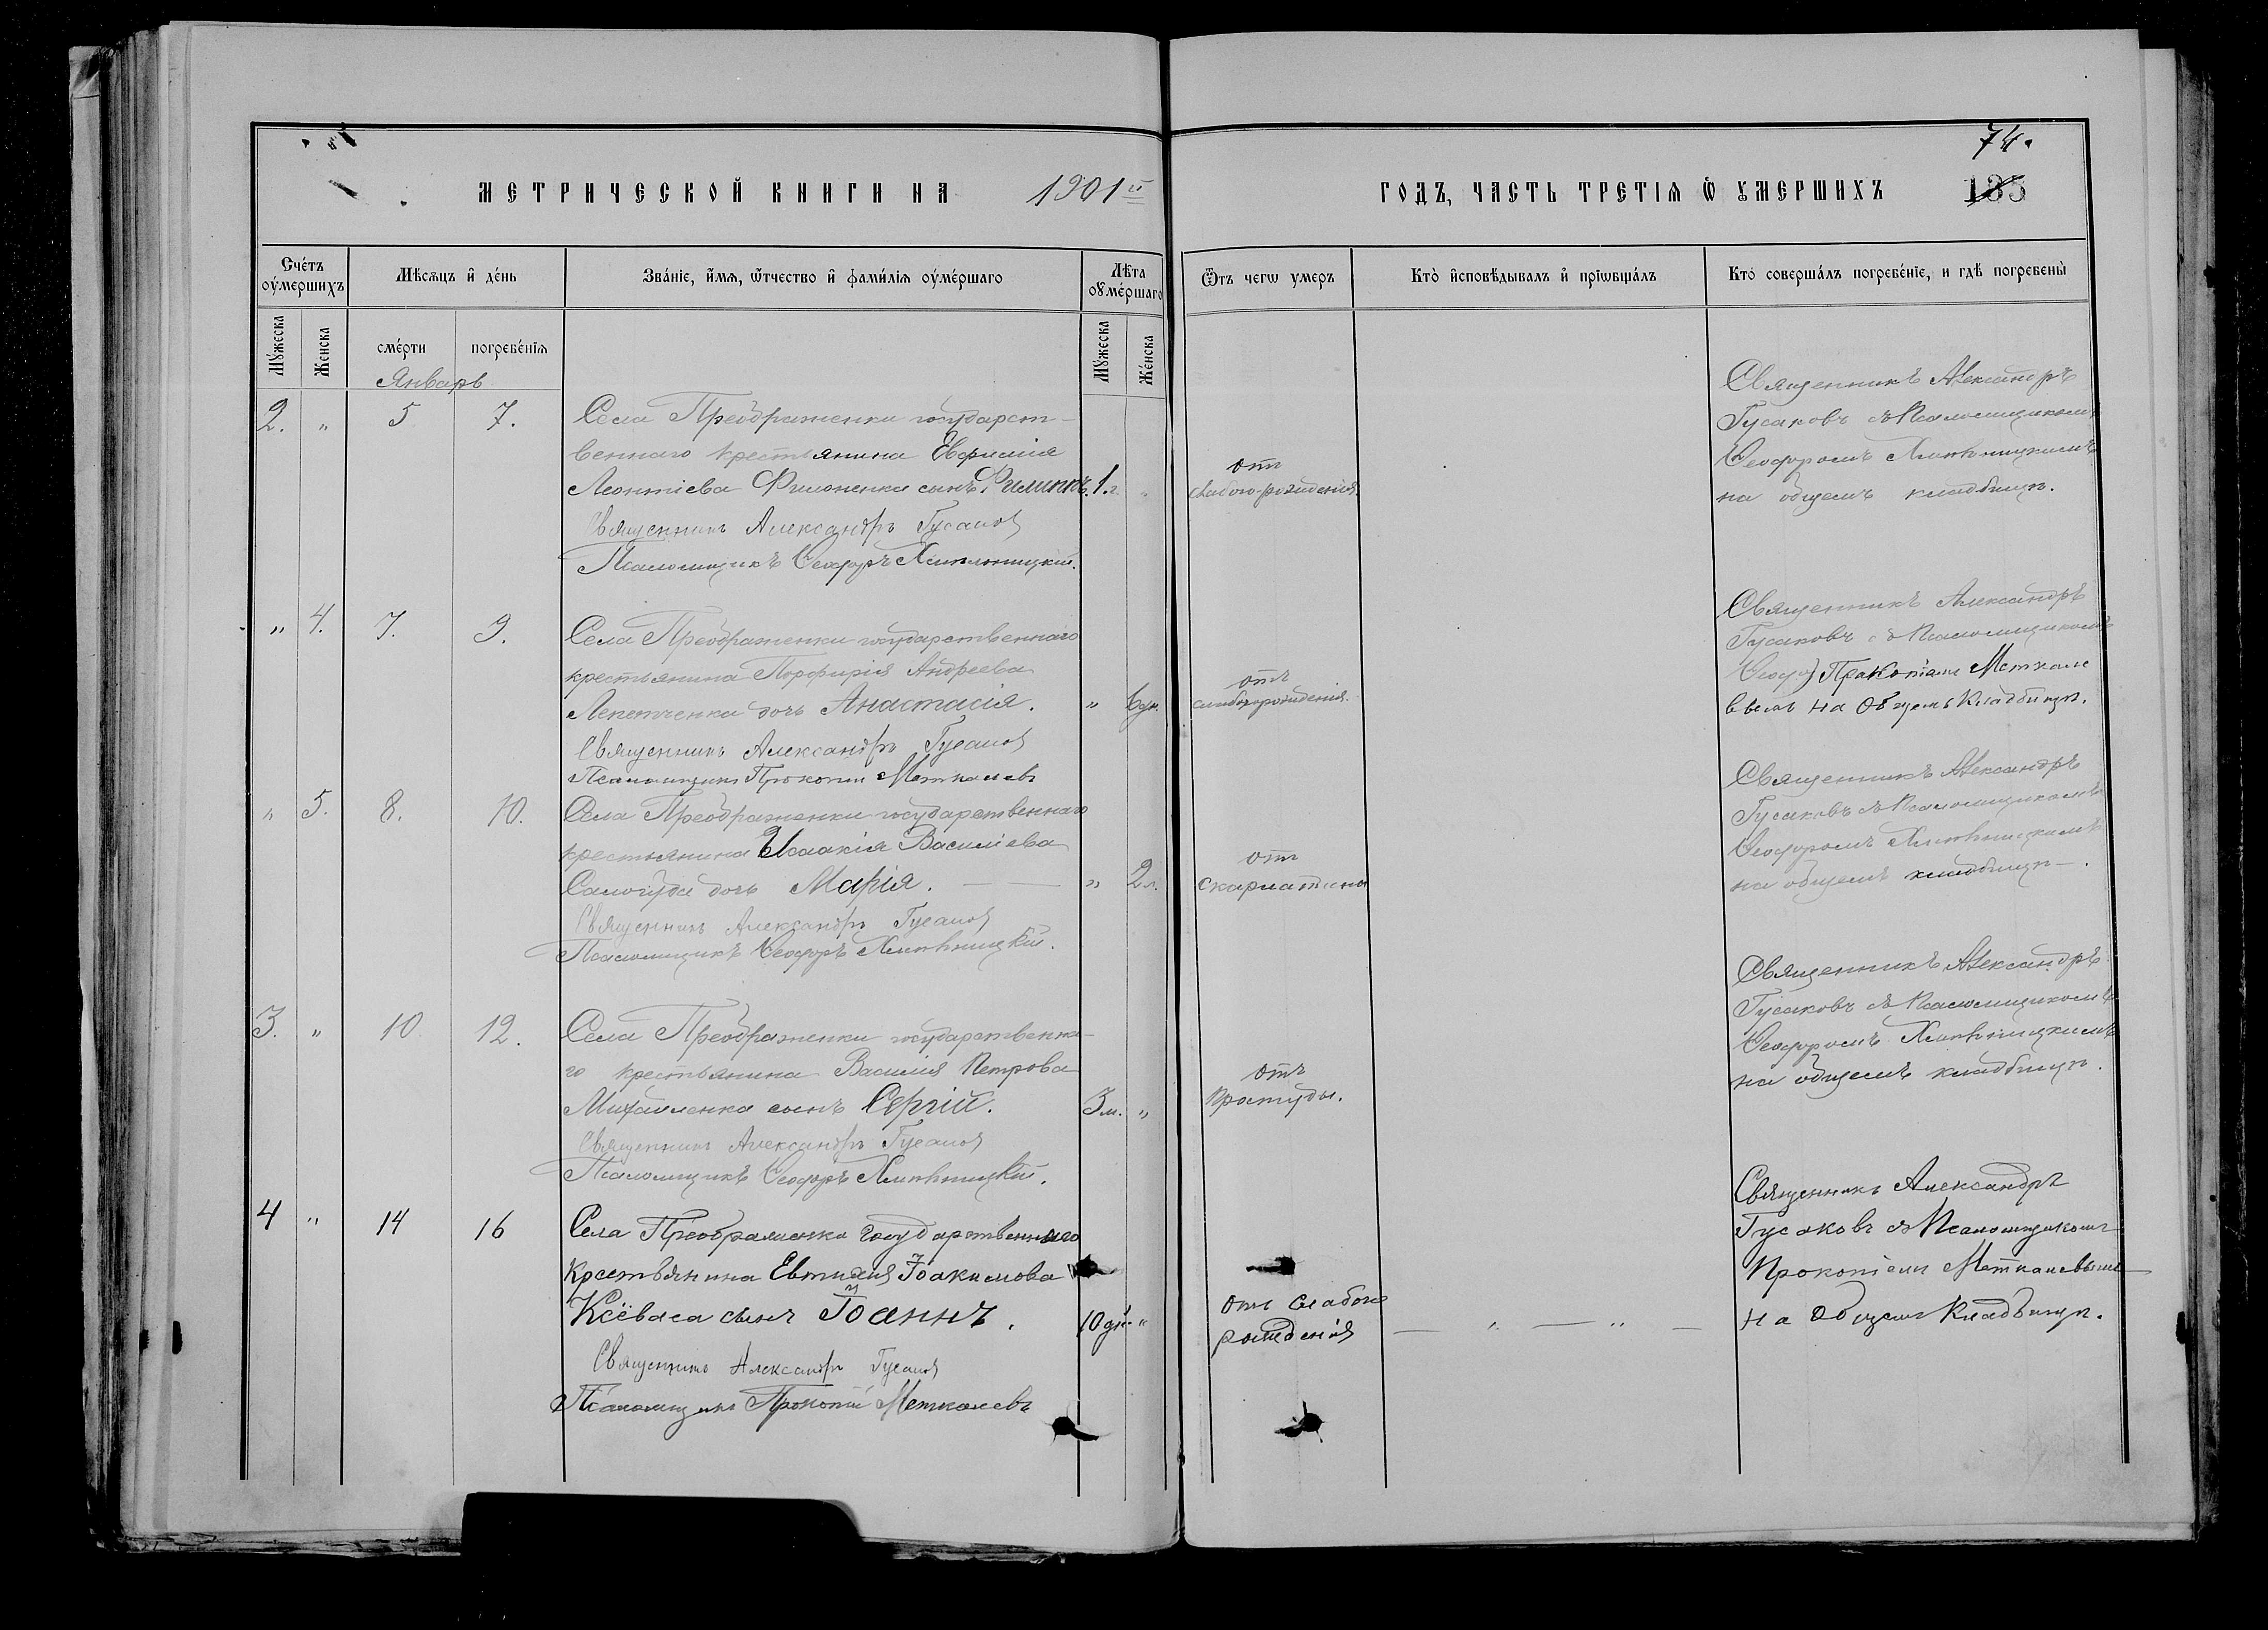 74.
МЕТРИЧЕСКОЙ КНИГИ НА 1901й ГОДЪ, ЧАСТЬ ТРЕТІѦ Ѽ ОУМЕРШИХЪ 135
Сче́тъ оу҆ме́ршихъ
Мѣ́сѧцъ и҆ де́нь
Зва́нїе, и҆́мѧ, ѻ҆́тчество и҆ фами́лїѧ оу҆ме́ршаго
Лѣ́та оу҆ме́ршаго
Ѿ чегѡ оумеръ
Кто̀ и҆сповѣ́дывалъ и҆ прїѡбща́лъ
Кто̀ соверша́лъ погребе́нїе, и гдѣ погребены̀
Мꙋ́жеска
Же́нска
сме́рти
погребе́нїѧ
Мꙋ́жеска
Же́нска
Январь
2. " 5 7.
Села Преображенки государст-
веннаго крестьянина Евфимія
Леонтіева Филоненка сынъ Филиппъ. 1.г. "
Священникъ Александръ Гусаковъ
Псаломщикъ Ѳеодоръ Хмѣльницкій.
отъ
слабого рожденія.
Священникъ Александръ
Гусаковъ съ Псаломщикомъ
Ѳеодоромъ Хмѣльницкимъ
на общемъ кладбищѣ.
" 4. 7. 9.
Села Преображенки государственнаго
крестьянина Порфирія Андреева
Лепетченка дочь Анастасія. "
Священникъ Александръ Гусаковъ
Псаломщикъ Прокопій Меткалевъ
отъ
слабого рожденія.
Священникъ Александръ
Гусаковъ съ Псаломщикомъ
Прокопіемъ Меткале
вымъ на Общемъ Кладбищѣ.
" 5. 8. 10.
Села Преображенки государственнаго
крестьянина Исаакія Василіева
Самогуда дочь Марія. — — " 2л.
Священникъ Александръ Гусаковъ
Псаломщикъ Ѳеодоръ Хмѣльницкій.
отъ
скарлатины
Священникъ Александръ
Гусаковъ съ Псаломщикомъ
Ѳеодоромъ Хмѣльницкимъ
на общемъ кладбищѣ —.
3. " 10 12.
Села Преображенки государственна-
го крестьянина Василія Петрова
Михайленка сынъ Сергій. 3м. "
Священникъ Александръ Гусаковъ
Псаломщикъ Ѳеодоръ Хмѣльницкій.
отъ
простуды.
Священникъ Александръ
Гусаковъ съ Псаломщикомъ
Ѳеодоромъ Хмѣльницкимъ
на общемъ кладбищѣ.
4 " 14 16
Села Преображенки государственнаго
Крестьянина Евтихія Іоакимова
сынъ Іоаннъ. 10 дн. "
Священникъ Александръ Гусаковъ
Псаломщикъ Прокопій Меткалевъ
отъ слабого
рожденія
— " — " —
Священникъ Александръ
Гусаковъ съ Псаломщикомъ
Прокопіемъ Меткалевымъ
на Общемъ Кладбищѣ.